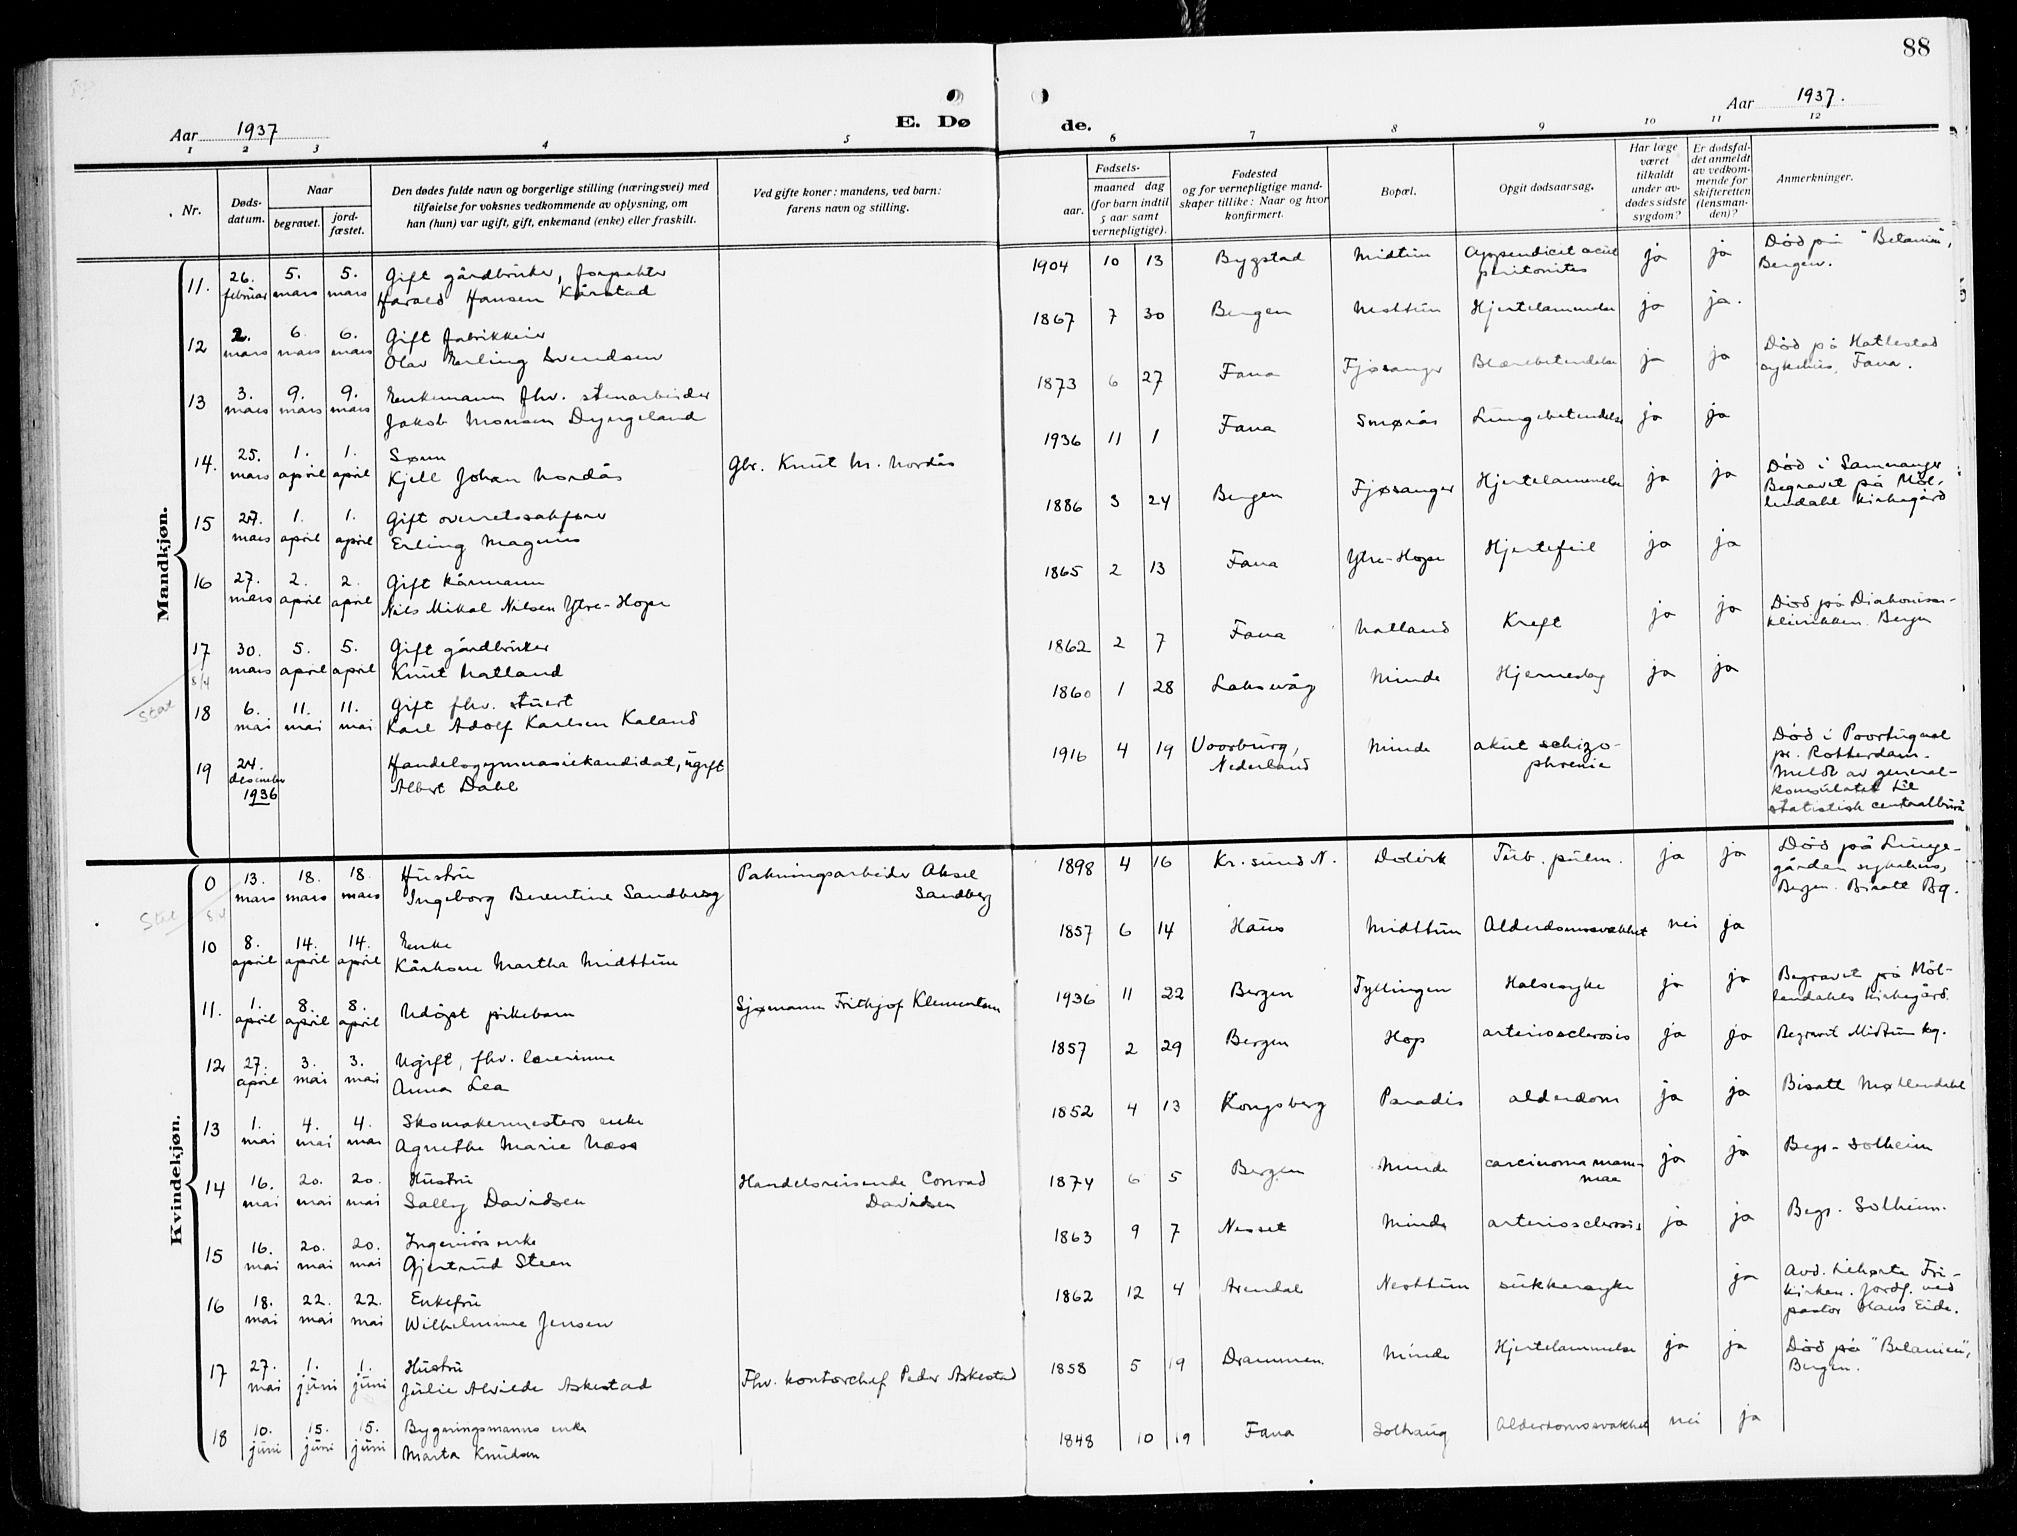 88
Aar 1937
E. Dø
de.
Aar 1937.
1 2 3 4 5
6 7 8 9 10 11 12
Nr.
Døds-
datum.
Naar
begravet.
jord-
fæstet.
Den dødes fulde navn og borgerlige stilling (næringsvei) med
tilføielse for voksnes vedkommende av oplysning, om
han (hun) var ugift, gift, enkemand (enke) eller fraskilt.
Ved gifte koner: mandens, ved barn:
farens navn og stilling.
Fødsels-
aar.
maaned dag
(for barn indtil
5 aar samt
vernepligtige).
Fødested
og for vernepligtige mand-
skaper tillike: Naar og hvor
konfirmert.
Bopæl.
Opgit dødsaarsag.
Har læge
været
tilkaldt
under av-
dødes sidste
sygdom?
Er dødsfal-
det anmeldt
av vedkom-
mende for
skifteretten
(lensman-
den)?
Anmerkninger.
Mandkjøn.
11. 26. februar 5. mars 5. mars Gift gårdbruker, forpakter
Harald Hansen Kårstad
1904 10 13 Bygstad Midtun Appendicit acut
peritonites ja ja Død på "Betanien",
Bergen.
12 2. mars 6. mars 6. mars Gift fabrikkeier
Olav Erling Svendsen
1867 7 30 Bergen Nesttun Hjertelammelse ja ja.
13 3. mars 9. mars 9. mars Enkemann fhv. stenarbeider
Jakob Monsen Dyngeland
1873 6 27 Fana Fjøsanger Blærebetendelse ja ja Død på Hatlestad
sykehus, Fana.
14. 25. mars 1. april 1. april Sønn
Kjell Johan Nordås
Gbr. Knut M. Nordås
1936 11 1 Fana Smørås Lungebetendelse ja ja
15 27. mars 1. april 1. april Gift overretssakfører
Erling Magnus
1886 3 24 Bergen Fjøsanger Hjertelammelse ja ja Død i Samnanger
Begravet på Møl-
lendahl Kirkegård
16 27. mars 2. april 2. april Gift kårmann
Nils Mikal Nilsen Ytre-Hope
1865 2 13 Fana Ytre-Hope Hjertefeil ja ja
17 30. mars 5. april 5. april Gift gårdbruker
Knut Natland
1862 2 7 Fana Natland Kreft ja ja Død på Diakonisse-
klinikken. Bergen
8/4
Stat
18 6. mai 11. mai 11. mai Gift fhv. stuert
Karl Adolf Karlsen Kaland
1860 1 28 Laksevåg Minde Hjerneslag ja ja
19 24. desember 1936 Handelsgymnasiekandidat, ugift
Albert Dahl
1916 4 19 Voorburg,
Nederland Minde akut schizo-
phrenie Død i Poortugaal
pr. Rotterdam.
Meldt av general-
konsulatet til
statistisk centralbyrå
Kvindekjøn.
0 13. mars 18. mars 18. mars Hustru
Ingeborg Berentine Sandberg
Pakningsarbeider Aksel
Sandberg
1898 4 16 Kr.sund N. Dolvik Tub. pulm. ja ja Død på Lunge-
gården sykehus,
Bergen. Bisatt Bg.
Stat
10 8. april 14. april 14. april Enke
Kårkone Martha Midttun
1857 6 14 Haus Midttun Alderdomssvakhet nei ja
11. 1. april 8. april 8. april Udøpt pikebarn
Sjømann Frithjof Klementsen
1936 11 22 Bergen Tyllingen Halsesyke ja ja Begravet på Møl-
lendahls kirkegård.
12 27. april 3. mai 3. mai Ugift, fhv. lærerinne
Anna Lea
1857 2 29 Bergen Hop arteriosclerosis ja ja Begravet Midtun kg.
13 1. mai 4. mai 4. mai Skomakermesters enke
Agnethe Marie Næss
1852 4 13 Kongsberg Paradis alderdom ja ja Bisatt Møhlendahl
14 16. mai 20. mai 20. mai Hustru
Sally Davidsen
Handelsreisende Conrad
Davidsen
1874 6 5 Bergen Minde carcinoma mam-
mae ja ja Begr. Solheim
15 16. mai 20. mai 20. mai Ingeniørs enke
Gjertrud Steen
1863 9 7 Nesset Minde arteriosclerosis ja ja Begr. Solheim.
16 18. mai 22. mai 22. mai Enkefru
Wilhelmine Jensen
1862 12 4 Arendal Nesttun sukkersyke ja Avd. tilhørte Fri-
kirken. Jordf. ved
pastor Hans Eide.
17 27. mai 1. juni 1. juni Hustru
Julie Alvilde Askestad
Fhv. kontorchef Peder Askestad
1858 5 19 Drammen. Minde Hjertelammelse ja ja Død på "Betanien",
Bergen.
18 10. juni 15. juni 15. juni Bygningsmanns enke
Marta Knudsen
1848 10 19 Fana Solhaug Alderdomssvakhet nei ja